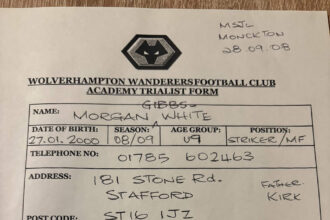 MSJL
MONCKTON
28.09.08
WOLVERHAMPTON WANDERERS FOOTBALL CLUB
ACADEMY TRIALIST FORM
GIBBS-
NAME: MORGAN WHITE
DATE OF BIRTH: SEASON: AGE GROUP: POSITION:
27.01.2000 08/09 U9 STRIKER/MF
TELEPHONE NO: 01785 602463
ADDRESS: 181 STONE Rd.
STAFFORD
FATHER
KIRK
POST CODE: ST16 1JZ